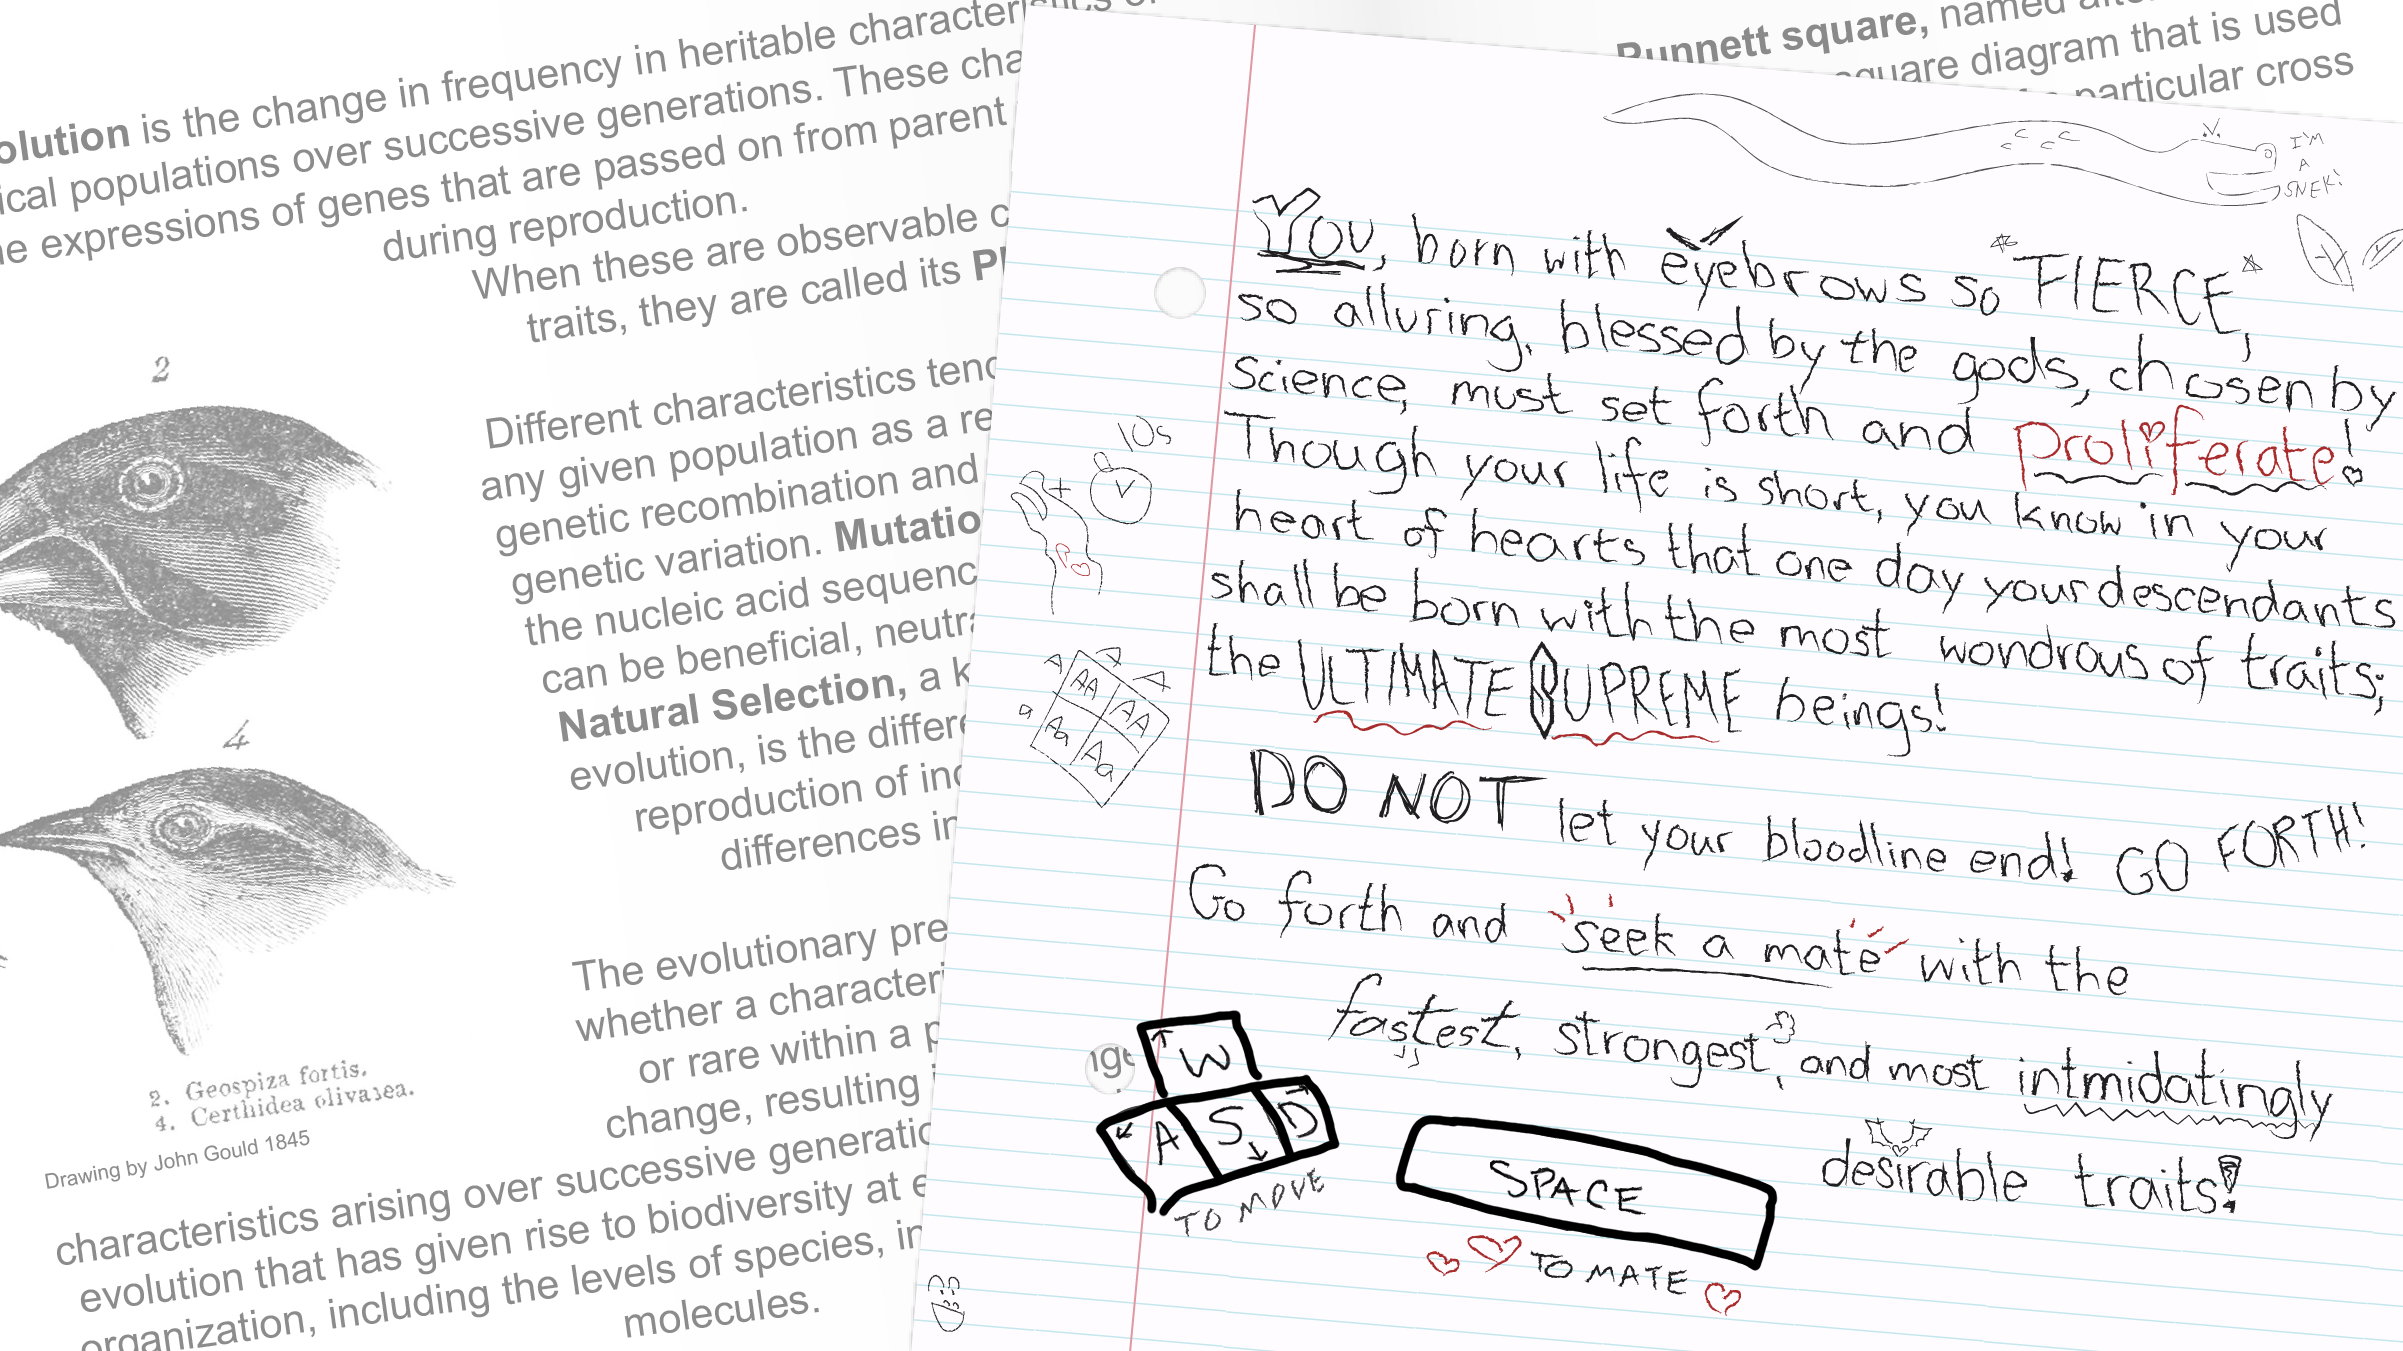 olution is the change in frequency in heritable characteristics
ical populations over successive generations. These cha
e expressions of genes that are passed on from parent
during reproduction.
When these are observable c
traits, they are called its P
Different characteristics tend
any given population as a re
genetic recombination and
genetic variation. Mutatio
the nucleic acid sequenc
can be beneficial, neutra
Natural Selection, a k
evolution, is the differe
reproduction of ind
differences in
The evolutionary pre
whether a character
or rare within a p
change, resulting i
characteristics arising over successive generatio
evolution that has given rise to biodiversity at e
organization, including the levels of species, in
molecules.
2
4
2. Geospiza fortis.
4. Certhidea olivasea.
Drawing by John Gould 1845
Punnett square, named
square diagram that is used
particular cross
I'M
A
SNEK!
You, born with eyebrows so *FIERCE*,
so alluring, blessed by the gods, chosen by
science, must set forth and proliferate!
Though your life is short, you know in your
heart of hearts that one day your descendants
shall be born with the most wondrous of traits;
the ULTIMATE SUPREME beings!
DO NOT let your bloodline end! GO FORTH!
Go forth and seek a mate with the
fastest, strongest, and most intmidatingly
desirable traits!
10s
+
A A
A AA AA
a Aa Aa
nge
W
A S D
TO MOVE
SPACE
TO MATE